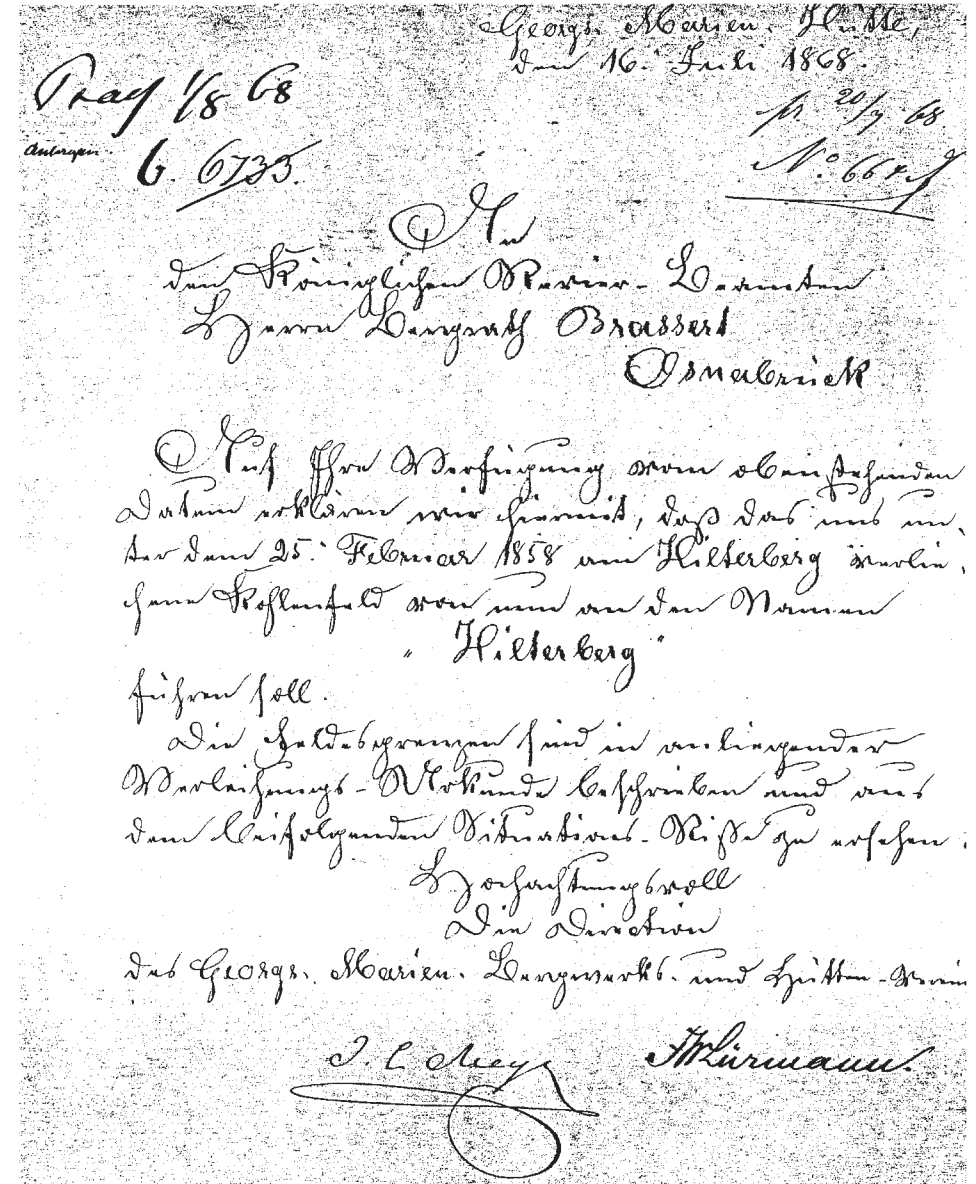 Georgs. Marien. Hütte,
den 16. Juli 1868.
1/8 68
pr. 20/7 68
6. 6733.
An
den Königlichen Revier-Beamten
Herrn Bergrath Brassert
Osnabrück
Auf Ihre Verfügung vom obenstehenden
Datum erklären wir hiermit, daß das uns un-
ter dem 25. Februar 1858 am Hilterberg verlie-
hene Kohlenfeld von nun an den Namen
"Hilterberg"
führen soll.
Die Feldesgrenzen sind in anliegender
Verleihungs-Urkunde beschrieben und aus
dem beifolgenden Situations-Risse zu ersehen.
Hochachtungsvoll
Die Direction
des Georgs. Marien. Bergwerks. und Hütten-Verein